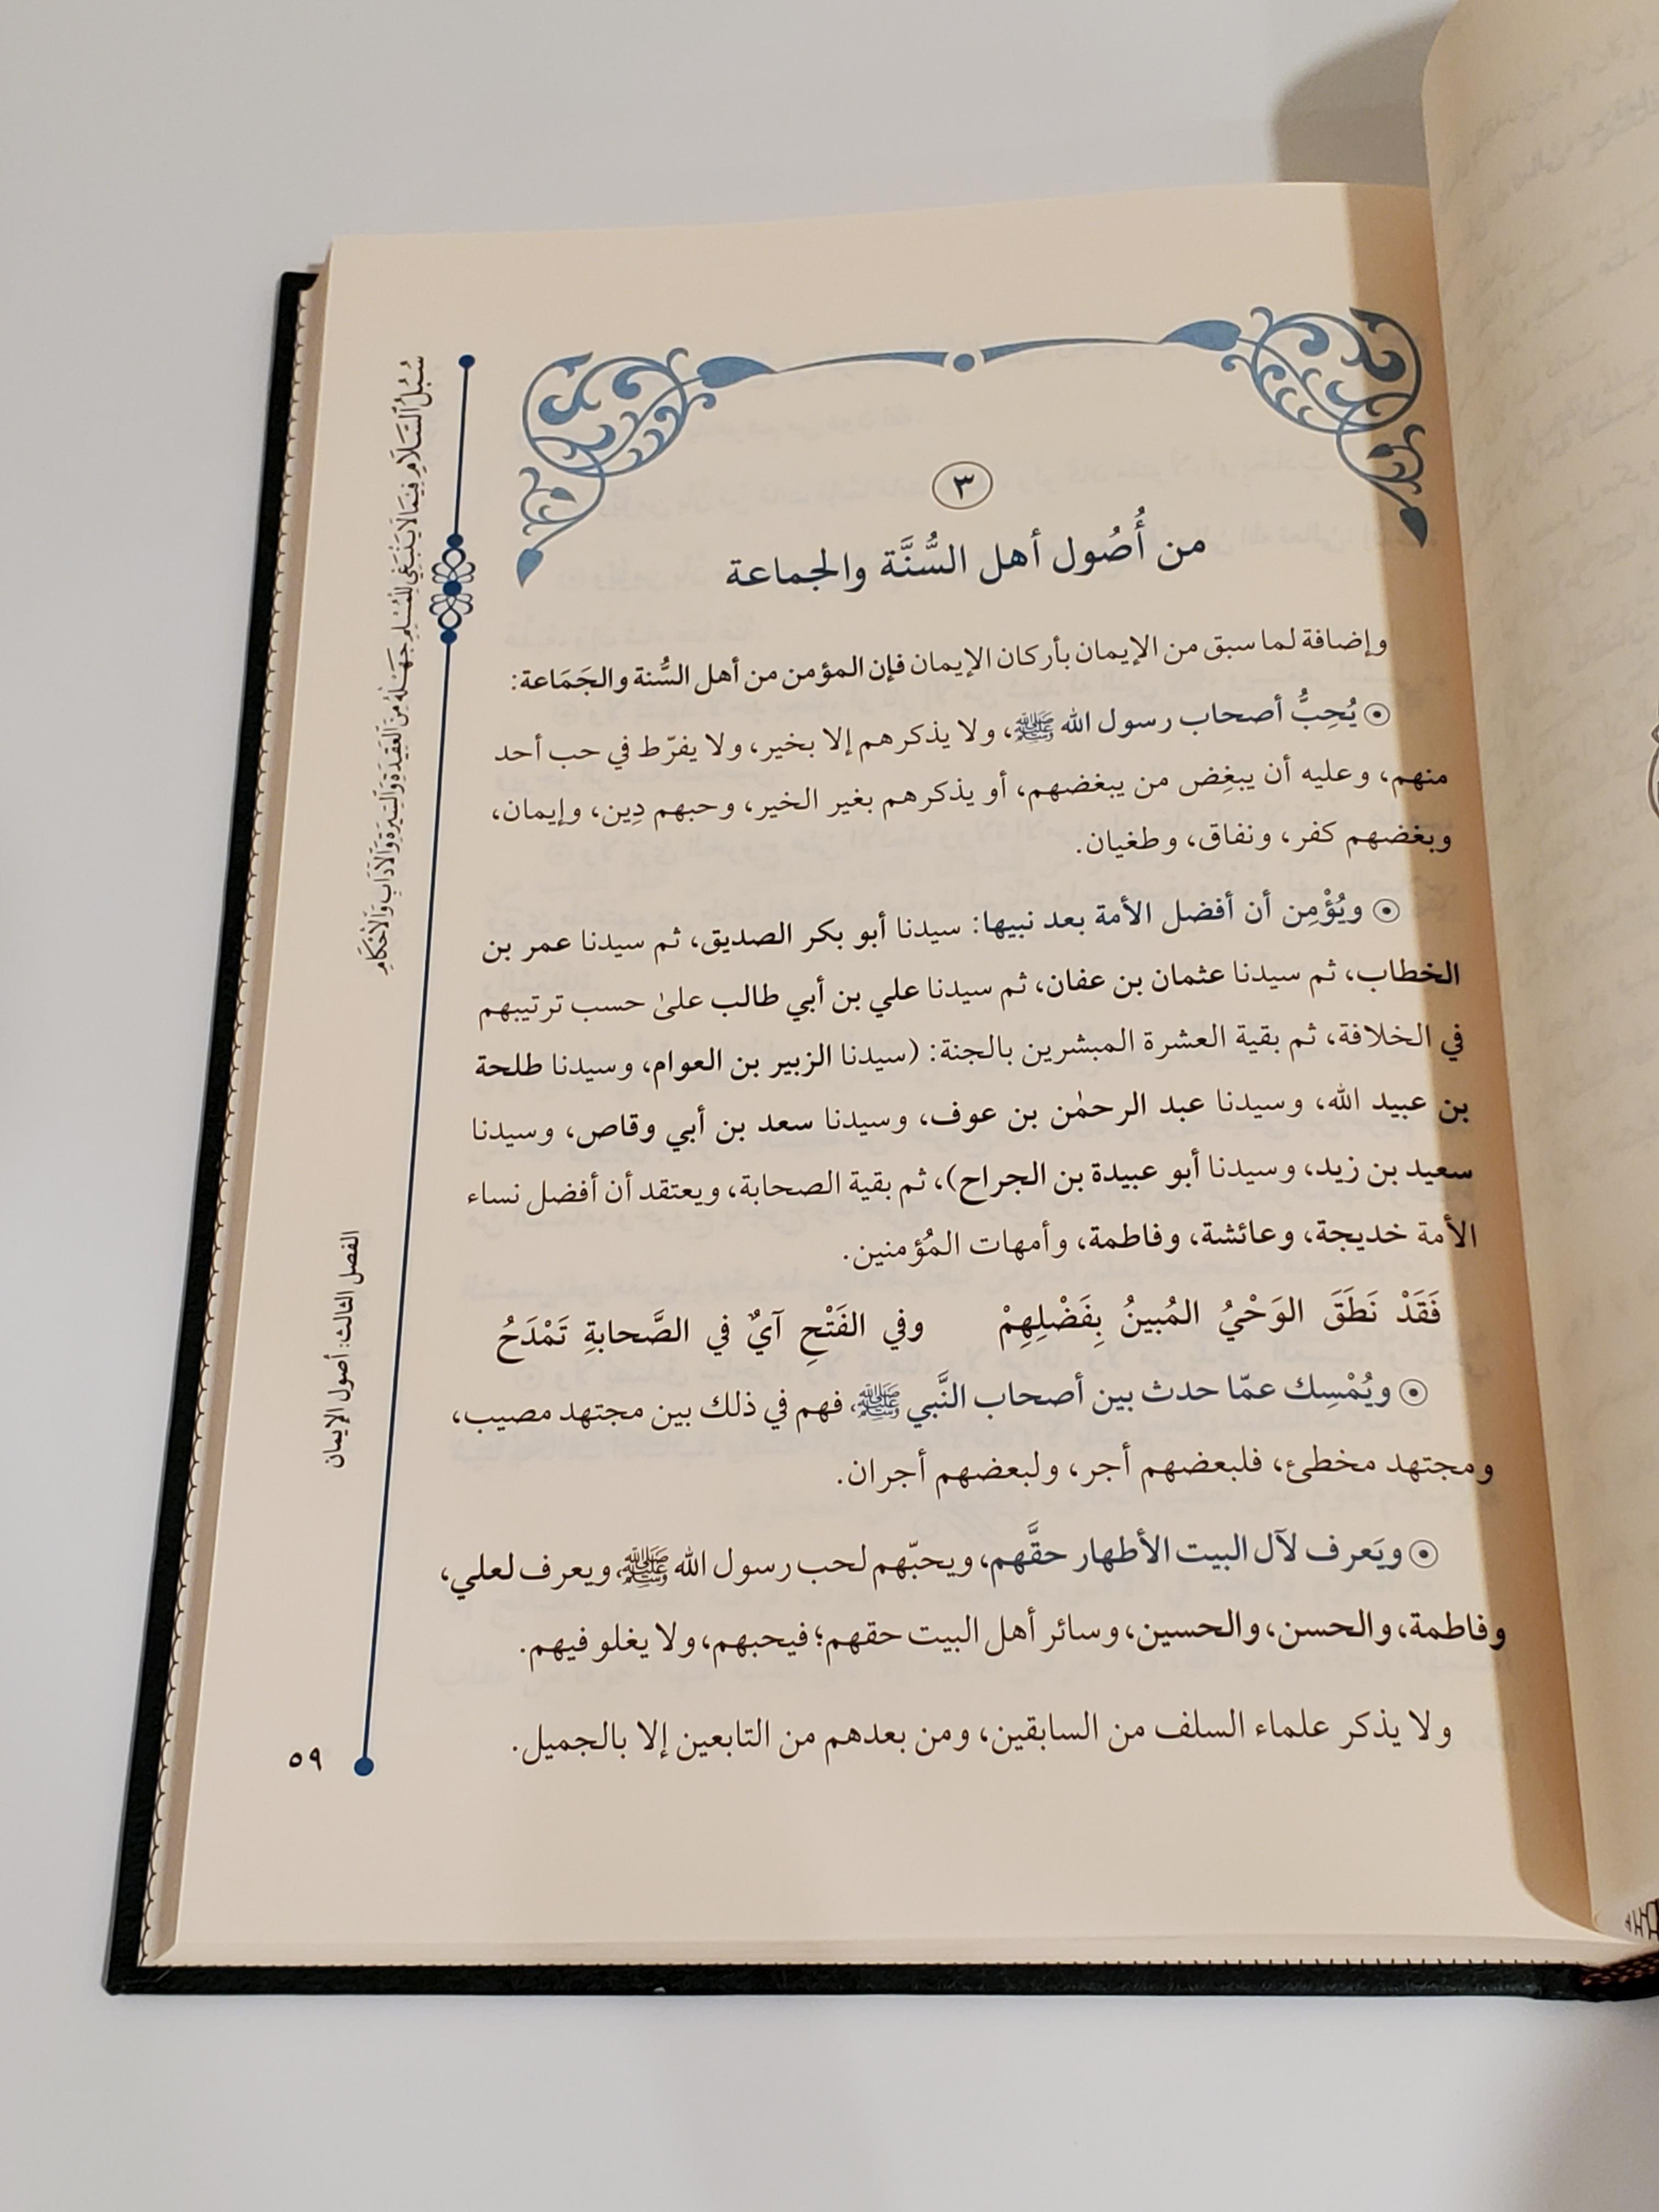 ٣
من أُصُول أهل السُّنَّة والجماعة
وإضافة لما سبق من الإيمان بأركان الإيمان فإن المؤمن من أهل السُّنة والجَمَاعة:
يُحِبُّ أصحاب رسول الله ﷺ، ولا يذكرهم إلا بخير، ولا يفرّط في حب أحد
منهم، وعليه أن يبغِض من يبغضهم، أو يذكرهم بغير الخير، وحبهم دِين، وإيمان،
وبغضهم كفر، ونفاق، وطغيان.
ويُؤْمِن أن أفضل الأمة بعد نبيها: سيدنا أبو بكر الصديق، ثم سيدنا عمر بن
الخطاب، ثم سيدنا عثمان بن عفان، ثم سيدنا علي بن أبي طالب علىٰ حسب ترتيبهم
في الخلافة، ثم بقية العشرة المبشرين بالجنة: (سيدنا الزبير بن العوام، وسيدنا طلحة
بن عبيد الله، وسيدنا عبد الرحمٰن بن عوف، وسيدنا سعد بن أبي وقاص، وسيدنا
سعيد بن زيد، وسيدنا أبو عبيدة بن الجراح)، ثم بقية الصحابة، ويعتقد أن أفضل نساء
الأمة خديجة، وعائشة، وفاطمة، وأمهات المُؤمنين.
فَقَدْ نَطَقَ الوَحْيُ المُبينُ بِفَضْلِهِمْ وفي الفَتْحِ آيٌ في الصَّحابةِ تَمْدَحُ
ويُمْسِك عمّا حدث بين أصحاب النَّبي ﷺ، فهم في ذلك بين مجتهد مصيب،
ومجتهد مخطئ، فلبعضهم أجر، ولبعضهم أجران.
ويَعرف لآل البيت الأطهار حقَّهم، ويحبّهم لحب رسول الله ﷺ، ويعرف لعلي،
وفاطمة، والحسن، والحسين، وسائر أهل البيت حقهم؛ فيحبهم، ولا يغلو فيهم.
ولا يذكر علماء السلف من السابقين، ومن بعدهم من التابعين إلا بالجميل.
سُبُلُ السَّلَامِ فِيمَا لَا يَنْبَغِي لِلْمُسْلِمِ جَهْلُهُ مِنَ الْعَقِيدَةِ وَالسِّيرَةِ وَالْآدَابِ وَالْأَحْكَامِ
الفصل الثالث: أصول الإيمان
٥٩